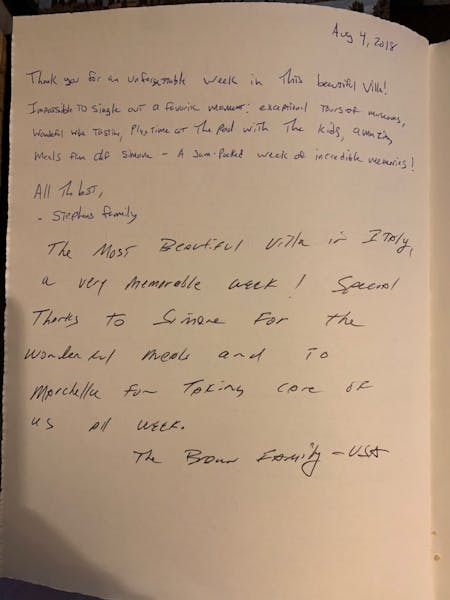 Aug 4, 2018
Thank you for an unforgettable week in this beautiful Villa!
Impossible to single out a favorite moment: exceptional tours of museums,
Wonderful wine tasting, Playtime at The Pool with The kids, amazing
Meals from chef Simone - A Jam-Packed week of incredible memories!
All The best,
- Stephens family
The Most Beautiful Villa in ITaly,
a very memorable week! Special
Thanks to Simone For the
wonderful meals and To
Marchella for Taking care of
us all week.
The Brown FAmily - USA